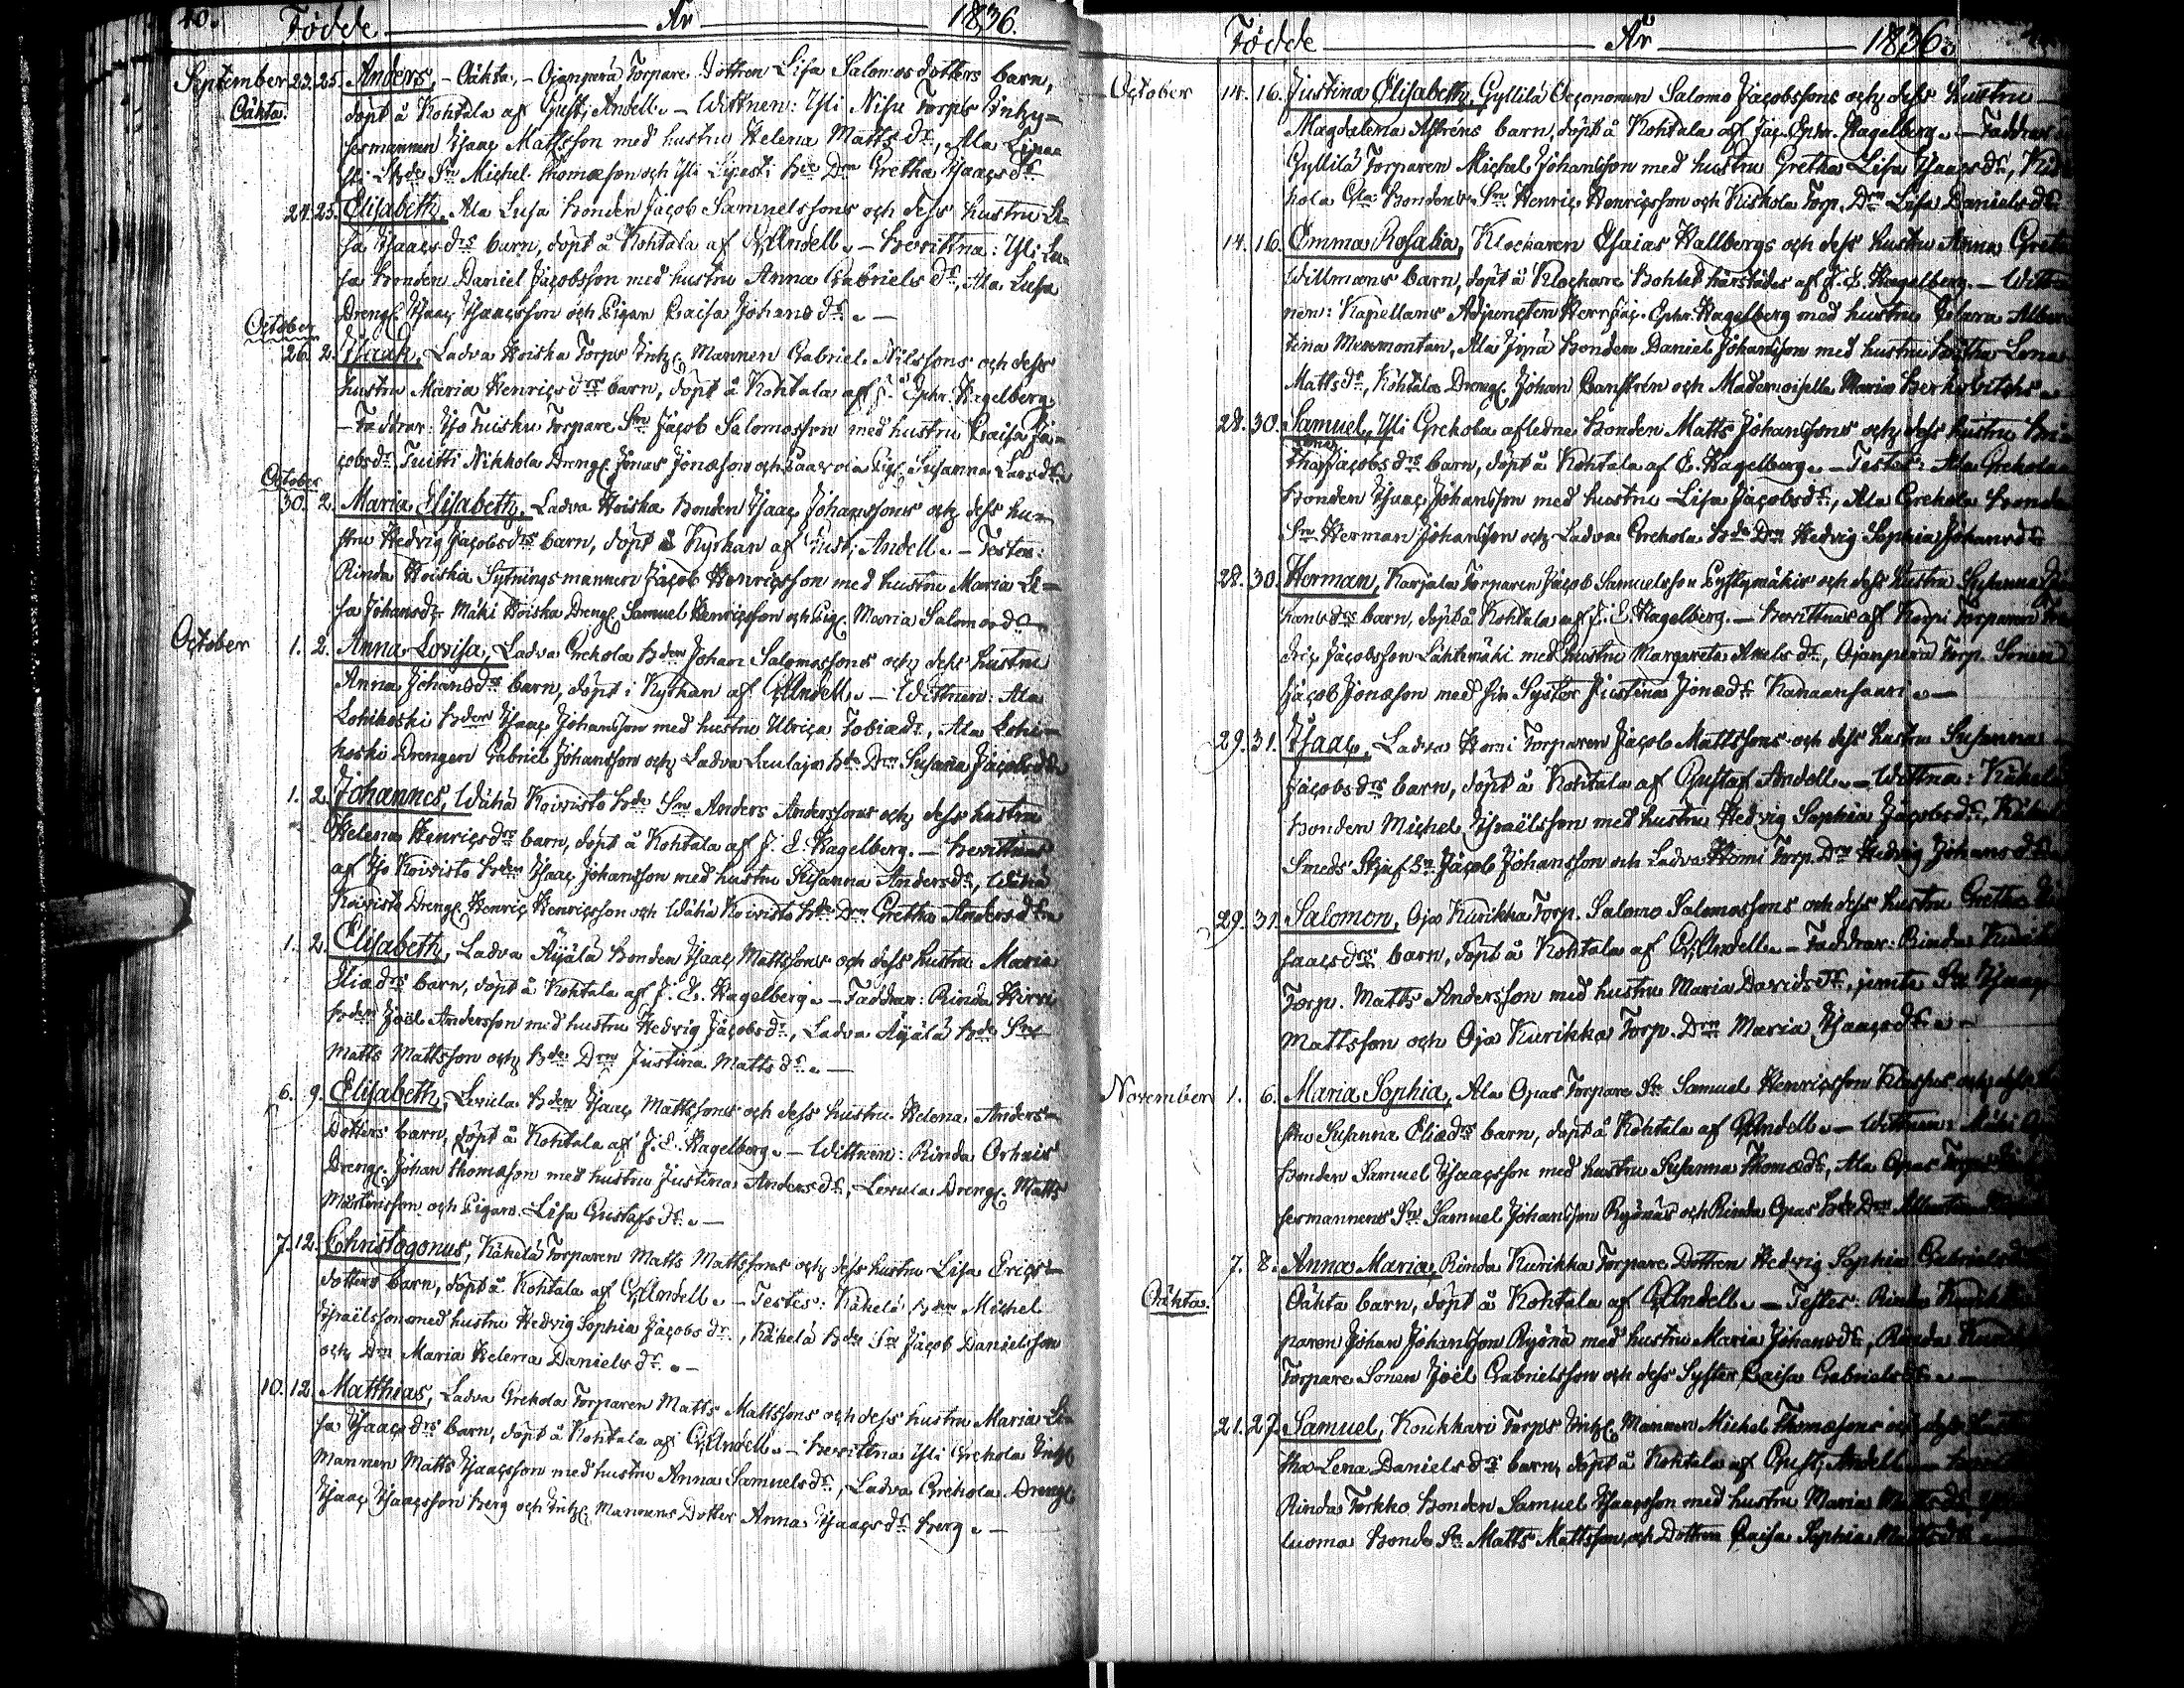 40. Födde År 1836.
September 23. 25. Anders, - Oäkta, - Ojanperä Torpare Dottren Lisa Salomos dotters barn,
Oäkta. döpt å Kohtala af Gust: Andell. - Wittnen: Yli Nisu Torps Inhy=
sesmannen Isaac Mattsson med hustru Helena Matts dr, Ala
Bde Sn Michel Thomæson och Yli Bde Drn Gretha Isaacs dr
24. 25. Elisabeth, Ala Lusa Bonden Jacob Samuelssons och dess hustru Li=
sa Isaacs drs barn, döpt å Kohtala af G. Andell. - Bevittna: Yli Lu=
sa Bonden Daniel Jacobsson med hustru Anna Gabriels dr, Ala Lusa
Dreng. Isaac Isaacsson och Pigan Caisa Johans dr. -
October
26. 2. Isaak, Ladva Koiska Torps Inhy. Mannen Gabriel Nilssons och dess
hustru Maria Henrics drs barn, döpt å Kohtala af J. Ephr. Hagelberg.
- Faddrar: Iso Torpare Sn Jacob Salomosson med hustru Caisa Ja=
cobs dr Tuitti Nikkola Dreng. Jonas Jonæson och Pig. Susanna Lars dr
October
30. 2. Maria Elisabeth, Ladva Koiska Bonden Isaac Johanssons och dess hu=
stru Hedvig Jacobs drs barn, döpt å Kyrkan af Gust: Andell. - Testes:
Rinda Koiska Sytningsmannen Jacob Henricsson med hustru Maria Li=
sa Johans dr Mäki Koiska Dreng. Samuel Henricsson och Pig. Maria Salomos dr
October 1. 2. Anna Lovisa, Ladva Grekola Bden Johan Salomossons och dess hustru
Anna Johans drs barn, döpt i Kyrkan af G. Andell. - Wittnen: Ala
Lohikoski Bden Isaac Johansson med hustru Ulrica Tobiæ dr, Ala Lohi=
koski Drengen Gabriel Johansson och Ladva Laulaja Bde Drn Susana Jacobs dr
1. 2. Johannes, Wähä Koivisto Bde Sn Anders Anderssons och dess hustru
Helena Henrics drs barn, döpt å Kohtala af J. E. Hagelberg. - Bevittnas
af Iso Koivisto Bden Isaac Johansson med hustru Susanna Anders dr, Wähä
Koivisto Dreng. Henric Henricsson och Wähä Koivisto Bde Drn Gretha Anders dr
1. 2. Elisabeth, Ladva Äijälä Bonden Isaac Mattssons och dess hustru Maria
Eliæ drs barn, döpt å Kohtala af J. E. Hagelberg. - Faddrar: Rinda Hirvi
Bden Joël Andersson med hustru Hedvig Jacobs dr, Ladva Äijälä Bde Sn
Matts Mattsson och Bde Drn Justina Matts dr. -
6. 9. Elisabeth, Levula Bden Isaac Mattssons och dess hustru Helena Anders=
Dotters barn, döpt å Kohtala af J. E. Hagelberg. - Wittnen: Rinda
Dreng. Johan Thomæson med hustru Justina Anders dr, Levula Dreng. Matts
Mårtensson och Pigan Lisa Gustafs dr. -
7. 12. Christogonus, Käkelä Torparen Matts Mattssons och dess hustru Lisa Erics=
dotters barn, döpt å Kohtala af G. Andell. - Testes: Käkelä Bden Michel
Israëlsson med hustru Hedvig Sophia Jacobs dr, Käkelä Bde Sn Jacob Danielsson
och Drn Maria Helena Daniels dr. -
10. 12. Matthias, Ladva Grekola Torparen Matts Mattssons och dess hustru Maria Li=
sa Isaacs drs barn, döpt å Kohtala af G. Andell. - Bevittna Yli Grekola Inhy.
Mannen Matts Isaacsson med hustru Anna Samuels dr, Ladva Grekola Dreng.
Isaac Isaacsson Berg och Inhy. Mannens Dotter Anna Isaacs dr Berg. -
Födde År 1836.
October 14. 16. Justina Elisabeth, Gyllilä Oeconomen Salomo Jacobssons och dess hustru
Magdalena Aströns barn, döpt å Kohtala af Jac. Ephr. Hagelberg. - Faddrar
Gyllilä Torparen Michel Johansson med hustru Gretha Lisa Isaacs dr, Kis
kola Bonde Sn Henric Henricsson och Kiskola Torp. Drn Lisa Daniels dr
14. 16. Emma Rosalia, Klockaren Esaias Hallbergs och dess hustru Anna Greta
Willmans barn, döpt å Klockare Bohlet härstädes af J. E. Hagelberg. - Witt
nen: Kapellans Adjuncten Herr Jac. Ephr. Hagelberg med hustru Clara Alber
tina Ala Jyrä Bonden Daniel Johansson med hustru Lena
Matts dr, Kohtala Dreng. Johan och Mademoiselle Maria
28. 30. Samuel, Yli Grekola afledne Bonden Matts Johanssons och dess hustru
Jacobs drs barn, döpt å Kohtala af E. Hagelberg. - Testes: Ala Grekola
Bonden Isaac Johansson med hustru Lisa Jacobs dr, Ala Grekola Bonde
Sn Herman Johansson och Ladva Grekola Bde Drn Hedvig Sophia Johans dr
28. 30. Herman, Karjala Torparen Jacob Samuelsson och dess hustru Susanna Jo
hans drs barn, döpt å Kohtala af J. E. Hagelberg. - Bevittnas af Korpi Torparen Hen
dric Jacobsson Lähtemäki med hustru Margareta Axels dr, Ojanperä Torp. Sonen
Jacob Jonæson med sin Syster Justina Jonæ dr Kanaansaari. -
29. 31. Isaac, Ladva Homi Torparen Jacob Mattssons och dess hustru Susanna
Jacobs drs barn, döpt å Kohtala af Gustaf Andell. - Wittna: Käkelä
Bonden Michel Israëlsson med hustru Hedvig Sophia Jacobs dr, Käkelä
Smeds Jacob Johansson och Ladva Homi Torp. Drn Hedvig Johans dr
29. 31. Salomon, Oja Kurikka Torp. Salomo Salomossons och dess hustru Gretha
saacs drs barn, döpt å Kohtala af G. Andell. - Faddrar: Rinda Kurikka
Torp. Matts Andersson med hustru Maria Davids dr, jemte Sn Isaac
Mattsson och Oja Kurikka Torp. Drn Maria Isaacs dr. -
November 1. 6. Maria Sophia, Ala Opas Torpare Sn Samuel Henricsson och dess
stru Susanna Eliæ drs barn, döpt å Kohtala af G. Andell. - Wittnen: Mäki
Bonden Samuel Isaacsson med hustru Susanna Thomæ dr, Ala Opas Torps
sesmannens Sn Samuel Johansson Ryönäs och Rinda Opas Bde Drn Albertina
7. 8. Anna Maria, Rinda Kurikka Torpare Dottren Hedvig Sophia Gabriels dr
Oäkta. Oäkta barn, döpt å Kohtala af G. Andell. - Testes: Rinda Kurikka
paren Johan Johansson Ryönä med hustru Maria Johans dr, Rinda Kurikka
Torpare Sonen Joël Gabrielsson och dess Syster Caisa Gabriels dr. -
21. 27. Samuel, Koukkari Torps Inhy. Mannen Michel Thomæsons och dess
Lena Daniels drs barn, döpt å Kohtala af Gust: Andell. -
Rinda Torkko Bonden Samuel Isaacsson med hustru Maria
luoma Bonde Sn Matts Mattsson, och Dottren Caisa Sophia Matts dr